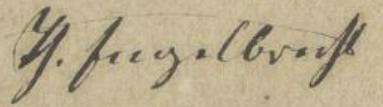 Th. Engelbrecht